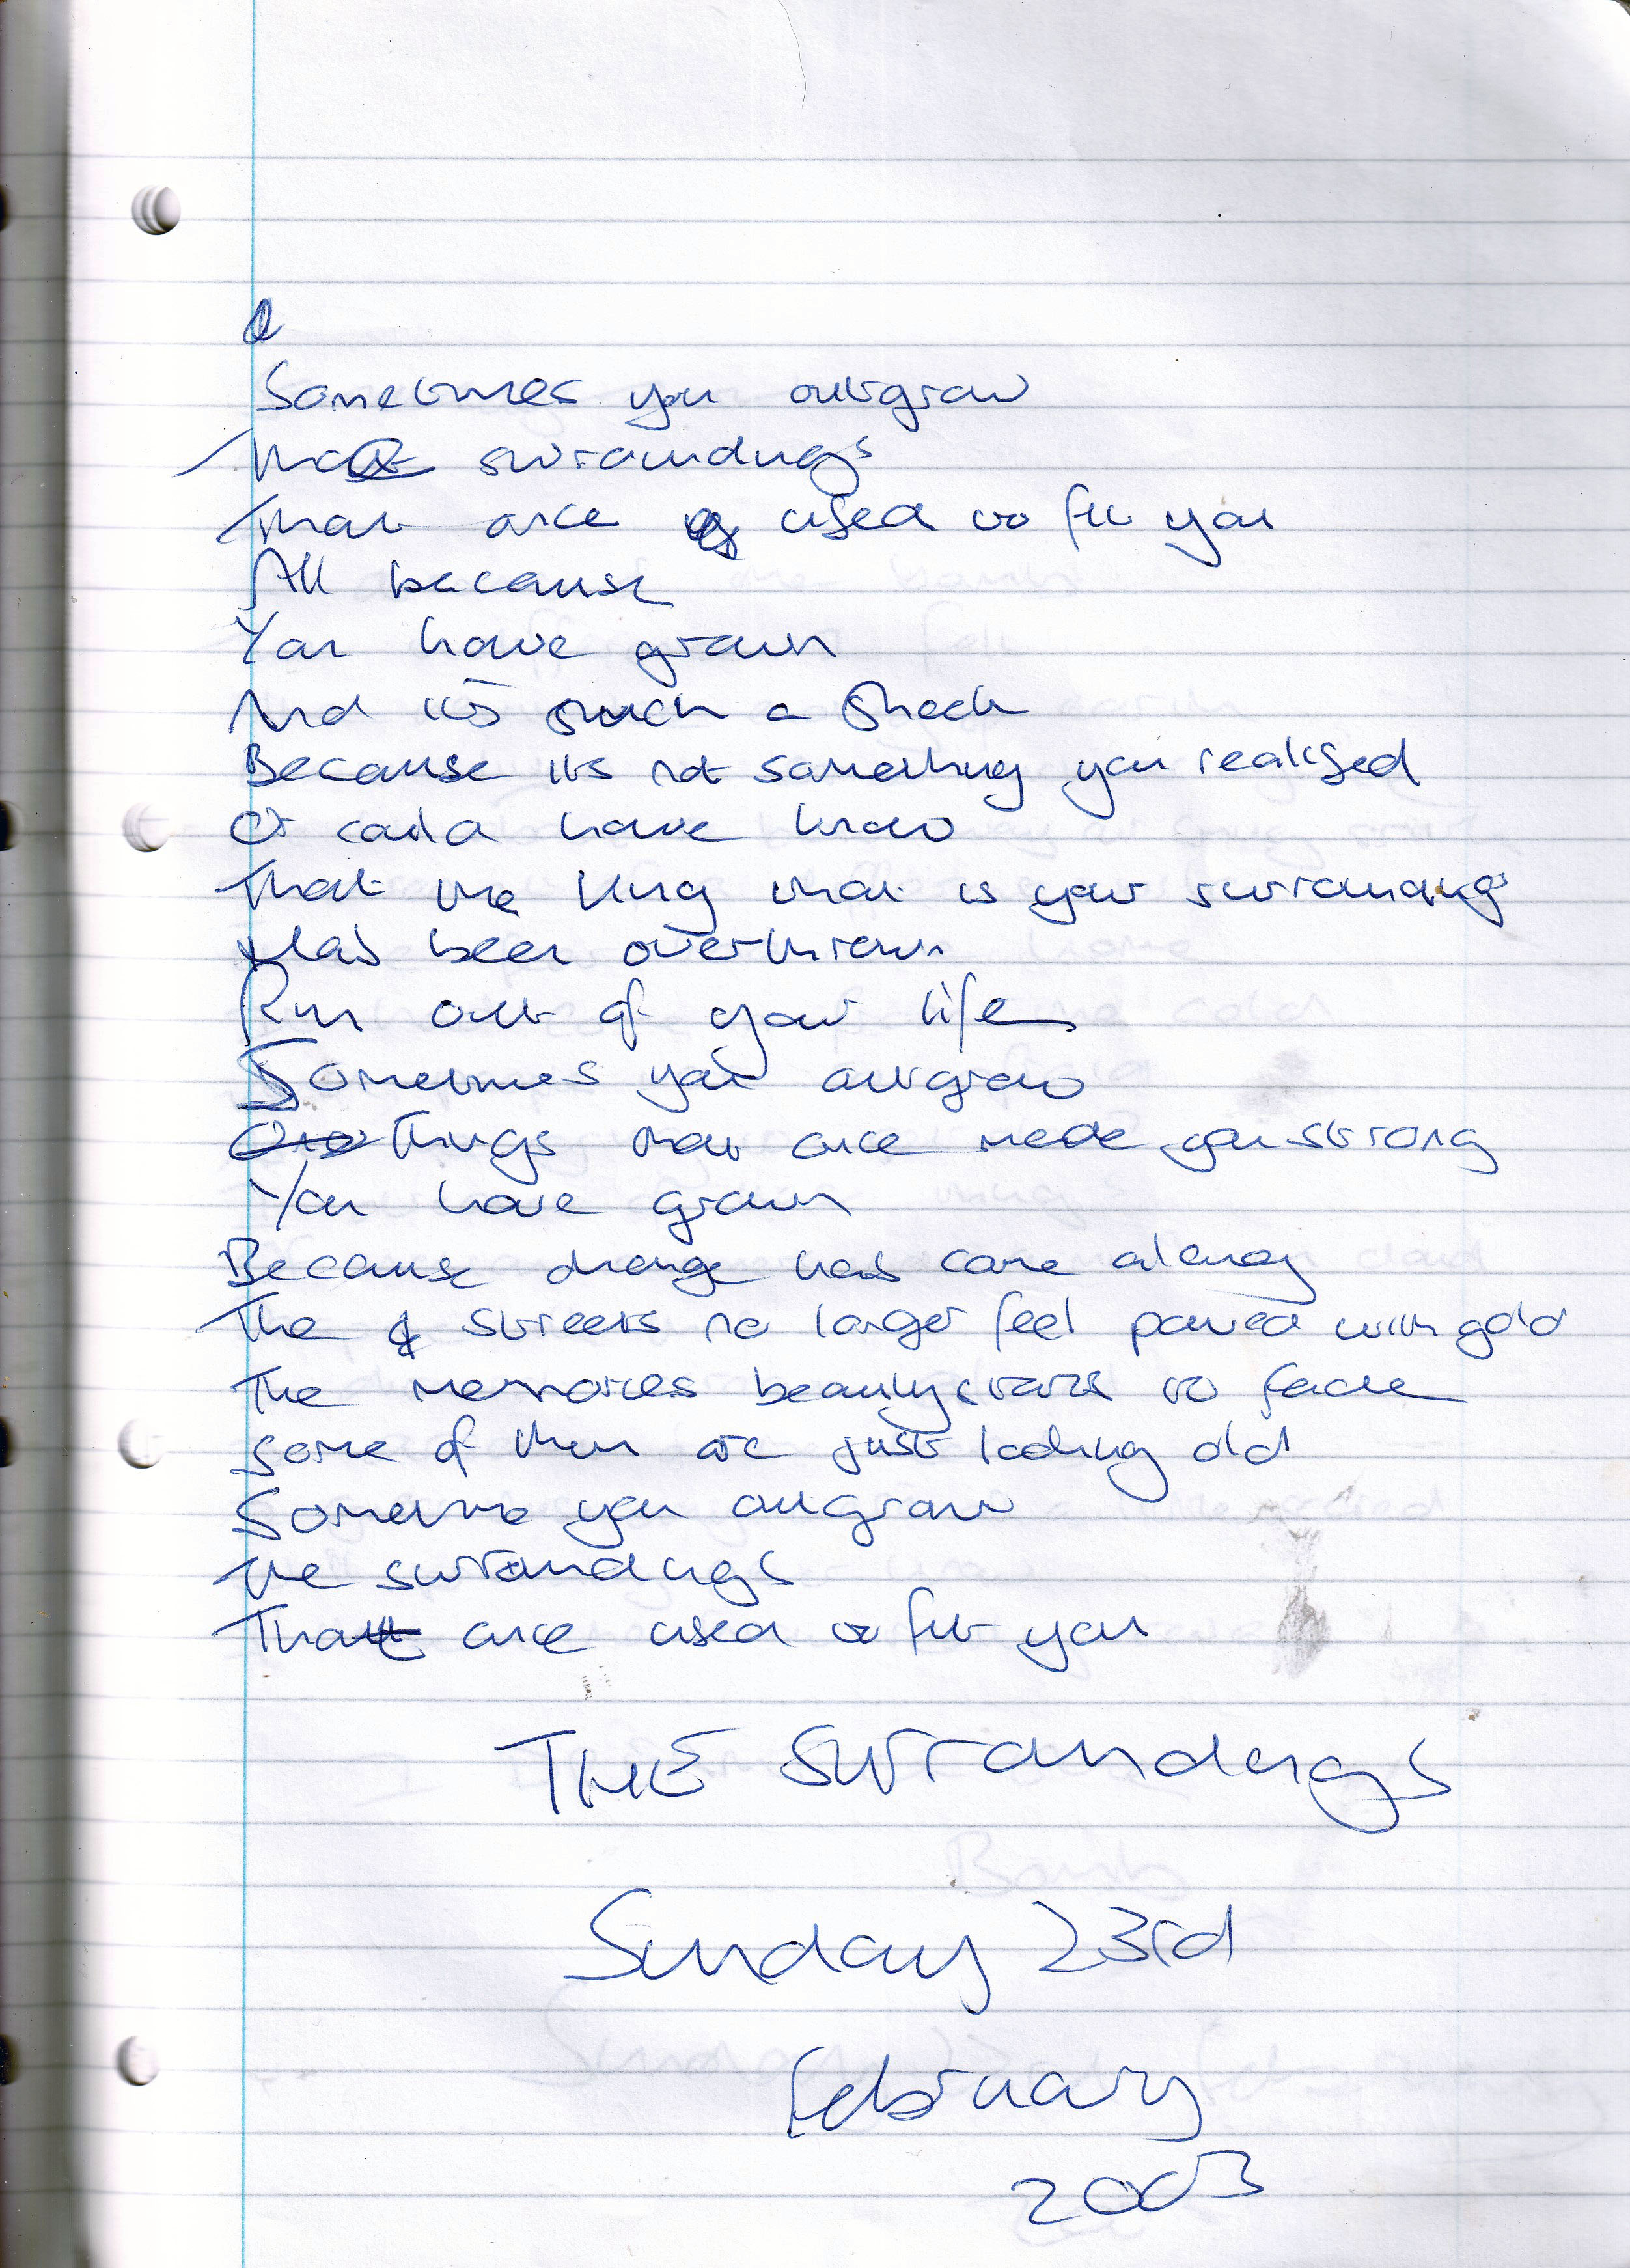 Sometimes you outgrow
The surroundings
That once used to fit you
All because
You have grown
And it's such a shock
Because its not something you realised
Or could have know
That the king that is your surroundings
Has been overthrown
Run out of your life
Sometimes you outgrow
Things that once made you strong
You have grown
Because change has come along
The streets no longer feel paved with gold
The memories beauty starts to fade
Some of them are just looking old
Sometime you outgrow
The surroundings
That once used to fit you
THE Surroundings
Sunday 23rd
February
2003